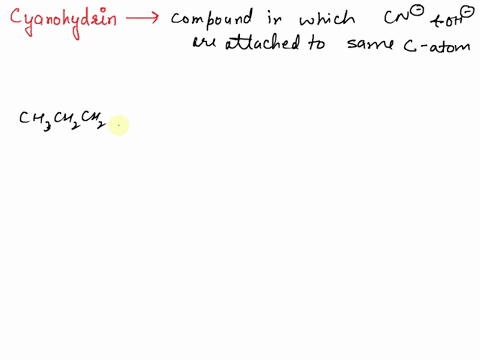 Cyanohydrin → compound in which CN⊖ & OH⊖
are attached to same C-atom
CH₃CH₂CH₂